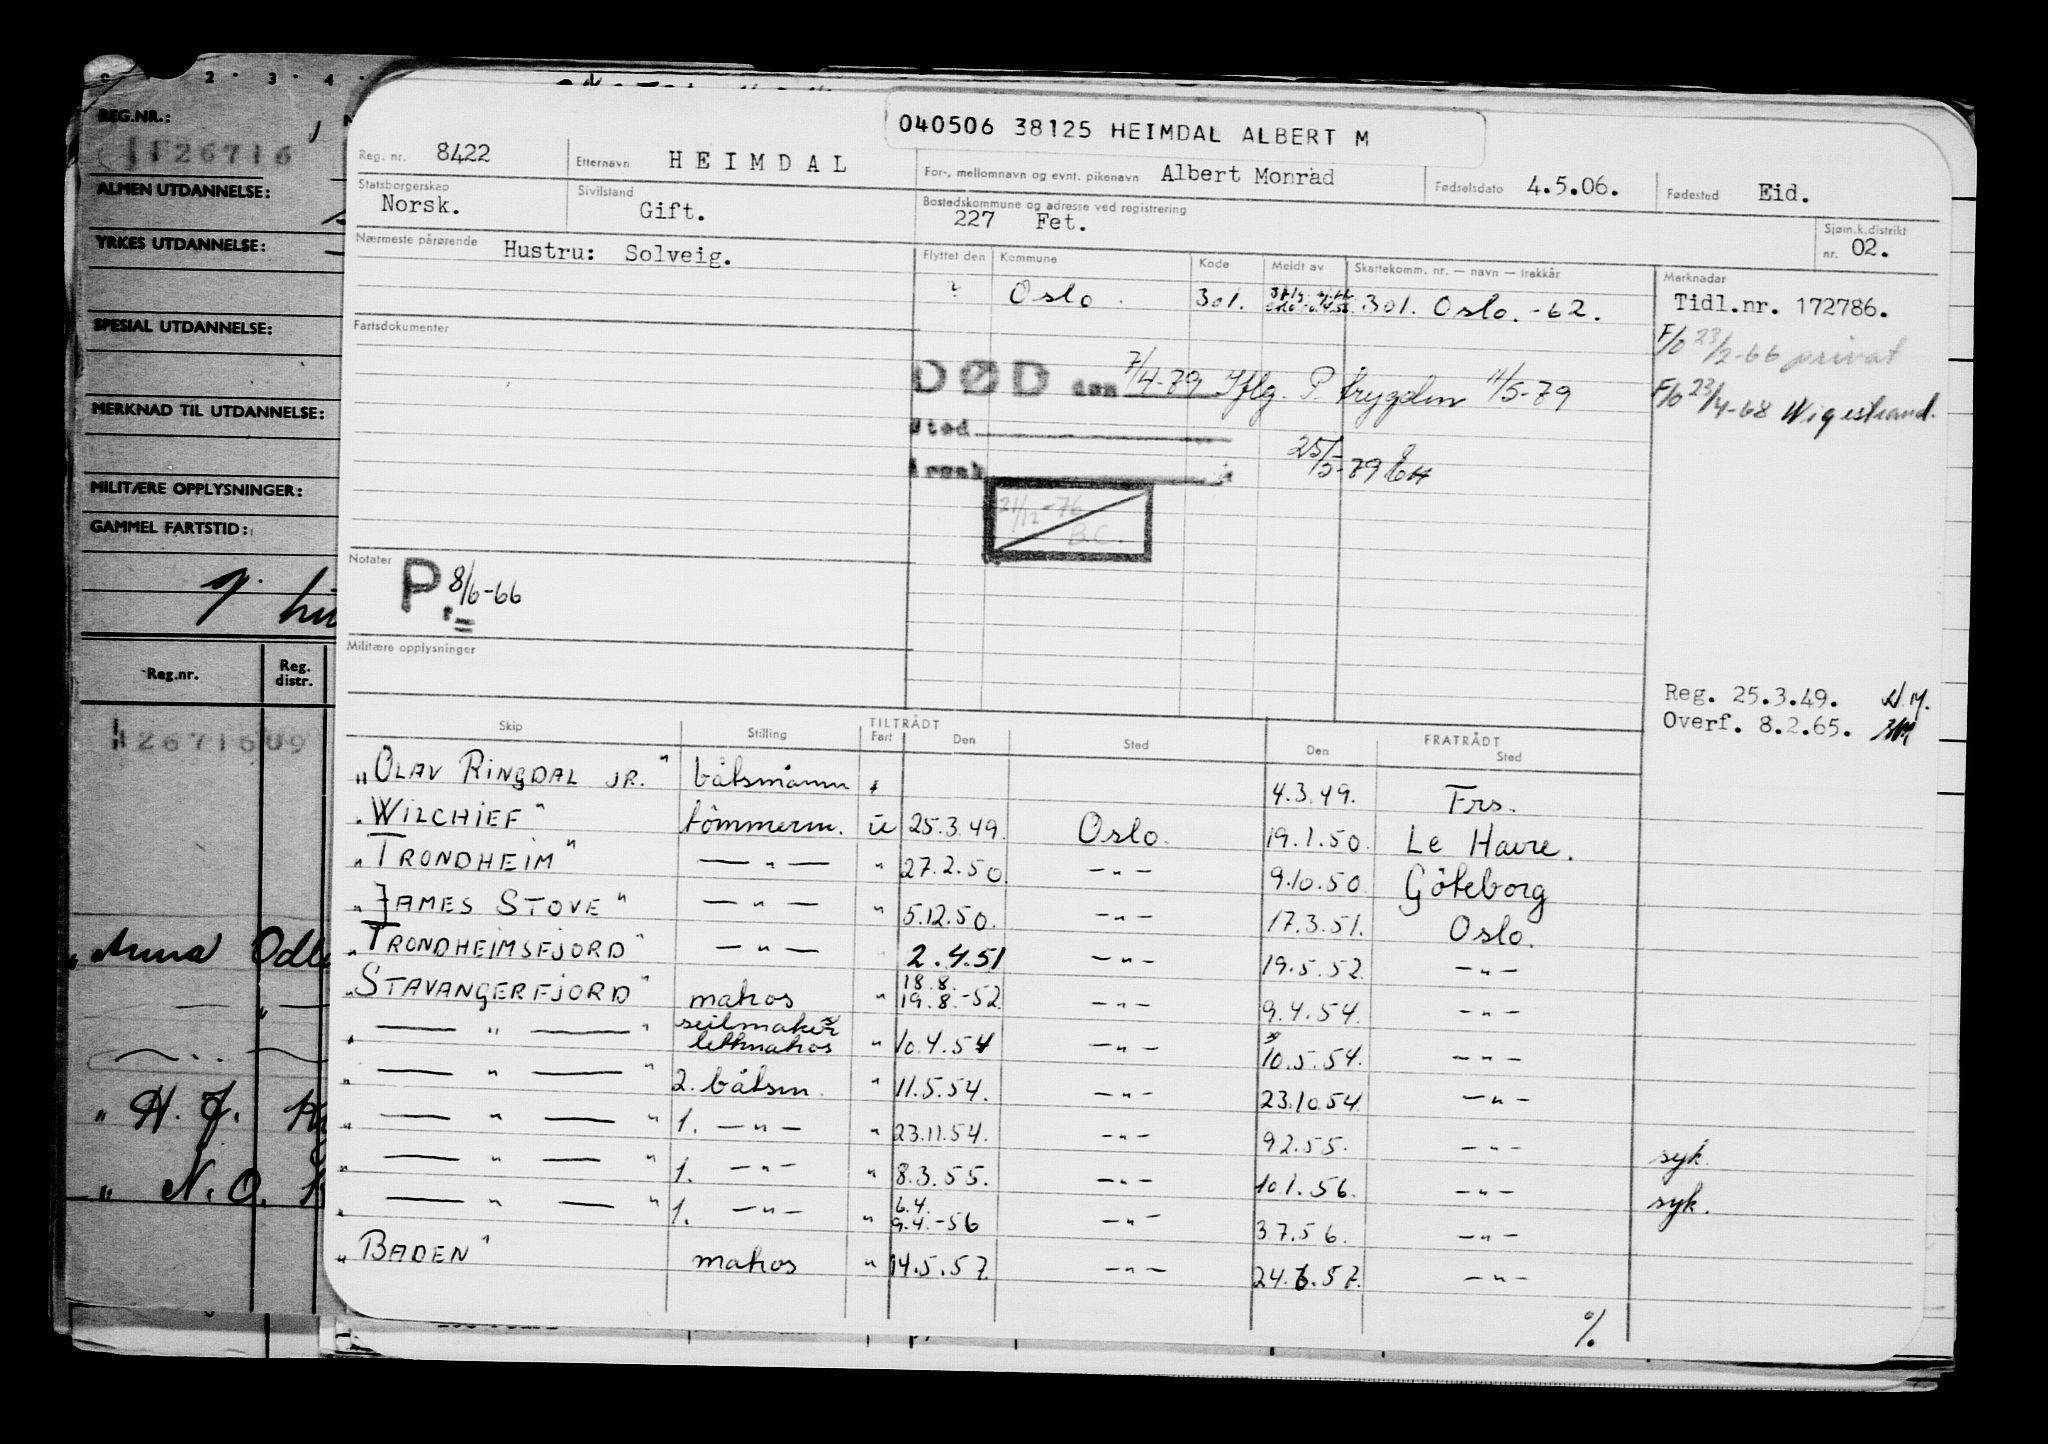 0 2 3 4
REG.NR.:
26716
ALMEN UTDANNELSE:
YRKES UTDANNELSE:
SPESIAL UTDANNELSE:
MERKNAD TIL UTDANNELSE:
MILITÆRE OPPLYSNINGER:
GAMMEL FARTSTID:
Reg.nr. Reg. distr.
2671609
"Anna
" H. J.
" N. O.
040506 38125 HEIMDAL ALBERT M
Reg. nr. 8422 Etternavn HEIMDAL For-, mellomnavn og evnt. pikenavn Albert Monrad Fødselsdato 4.5.06. Fødested Eid.
Statsborgerskap Norsk. Sivilstand Gift. Bostedskommune og adresse ved registrering 227 Fet. Sjøm.k.distrikt nr. 02.
Nærmeste pårørende Hustru: Solveig.
Flyttet den Kommune Kode Meldt av Skattekomm. nr. — navn — trekkår Merknader
? Oslo 301. 301. Oslo. -62. Tidl.nr. 172786.
Fartsdokumenter
F/o 23/2-66 privat
DØD den 7/4-79 Iflg. P. trygden 11/5-79
F/o 23/4-68 Wigestrand.
Sted
Årsak
25/5-79
21/12-76
B.C.
Notater P. 8/6-66
Militære opplysninger
Reg. 25.3.49.
Overf. 8.2.65.
Skip Stilling TILTRÅDT FRATRÅDT
Fart Den Sted Den Sted
"OLAV RINGDAL JR." båtsmann 4.3.49. Frs.
"WILCHIEF" tømmerm. u 25.3.49. Oslo. 19.1.50. Le Havre.
"TRONDHEIM" — " — " 27.2.50. — " — 9.10.50. Göteborg
"JAMES STOVE" — " — " 5.12.50. — " — 17.3.51. Oslo.
"TRONDHEIMSFJORD" — " — 2.4.51 — " — 19.5.52. — " —
"STAVANGERFJORD" matros " 18.8. 19.8.-52 — " — 9.4.54. — " —
" — " — " seilmaker lettmatros " 10.4.54 — " — 10.5.54. — " —
" — " — " 2. båtsm. " 11.5.54. — " — 23.10.54. — " —
" — " — " 1. — " — " 23.11.54. — " — 9.2.55. — " — syk.
" — " — " 1. — " — " 8.3.55. — " — 10.1.56. — " — syk.
" — " — " 1. — " — " 6.4. 9.4.-56 — " — 3.7.56. — " —
"BADEN" matros " 14.5.57. — " — 24.6.57. — " —
%